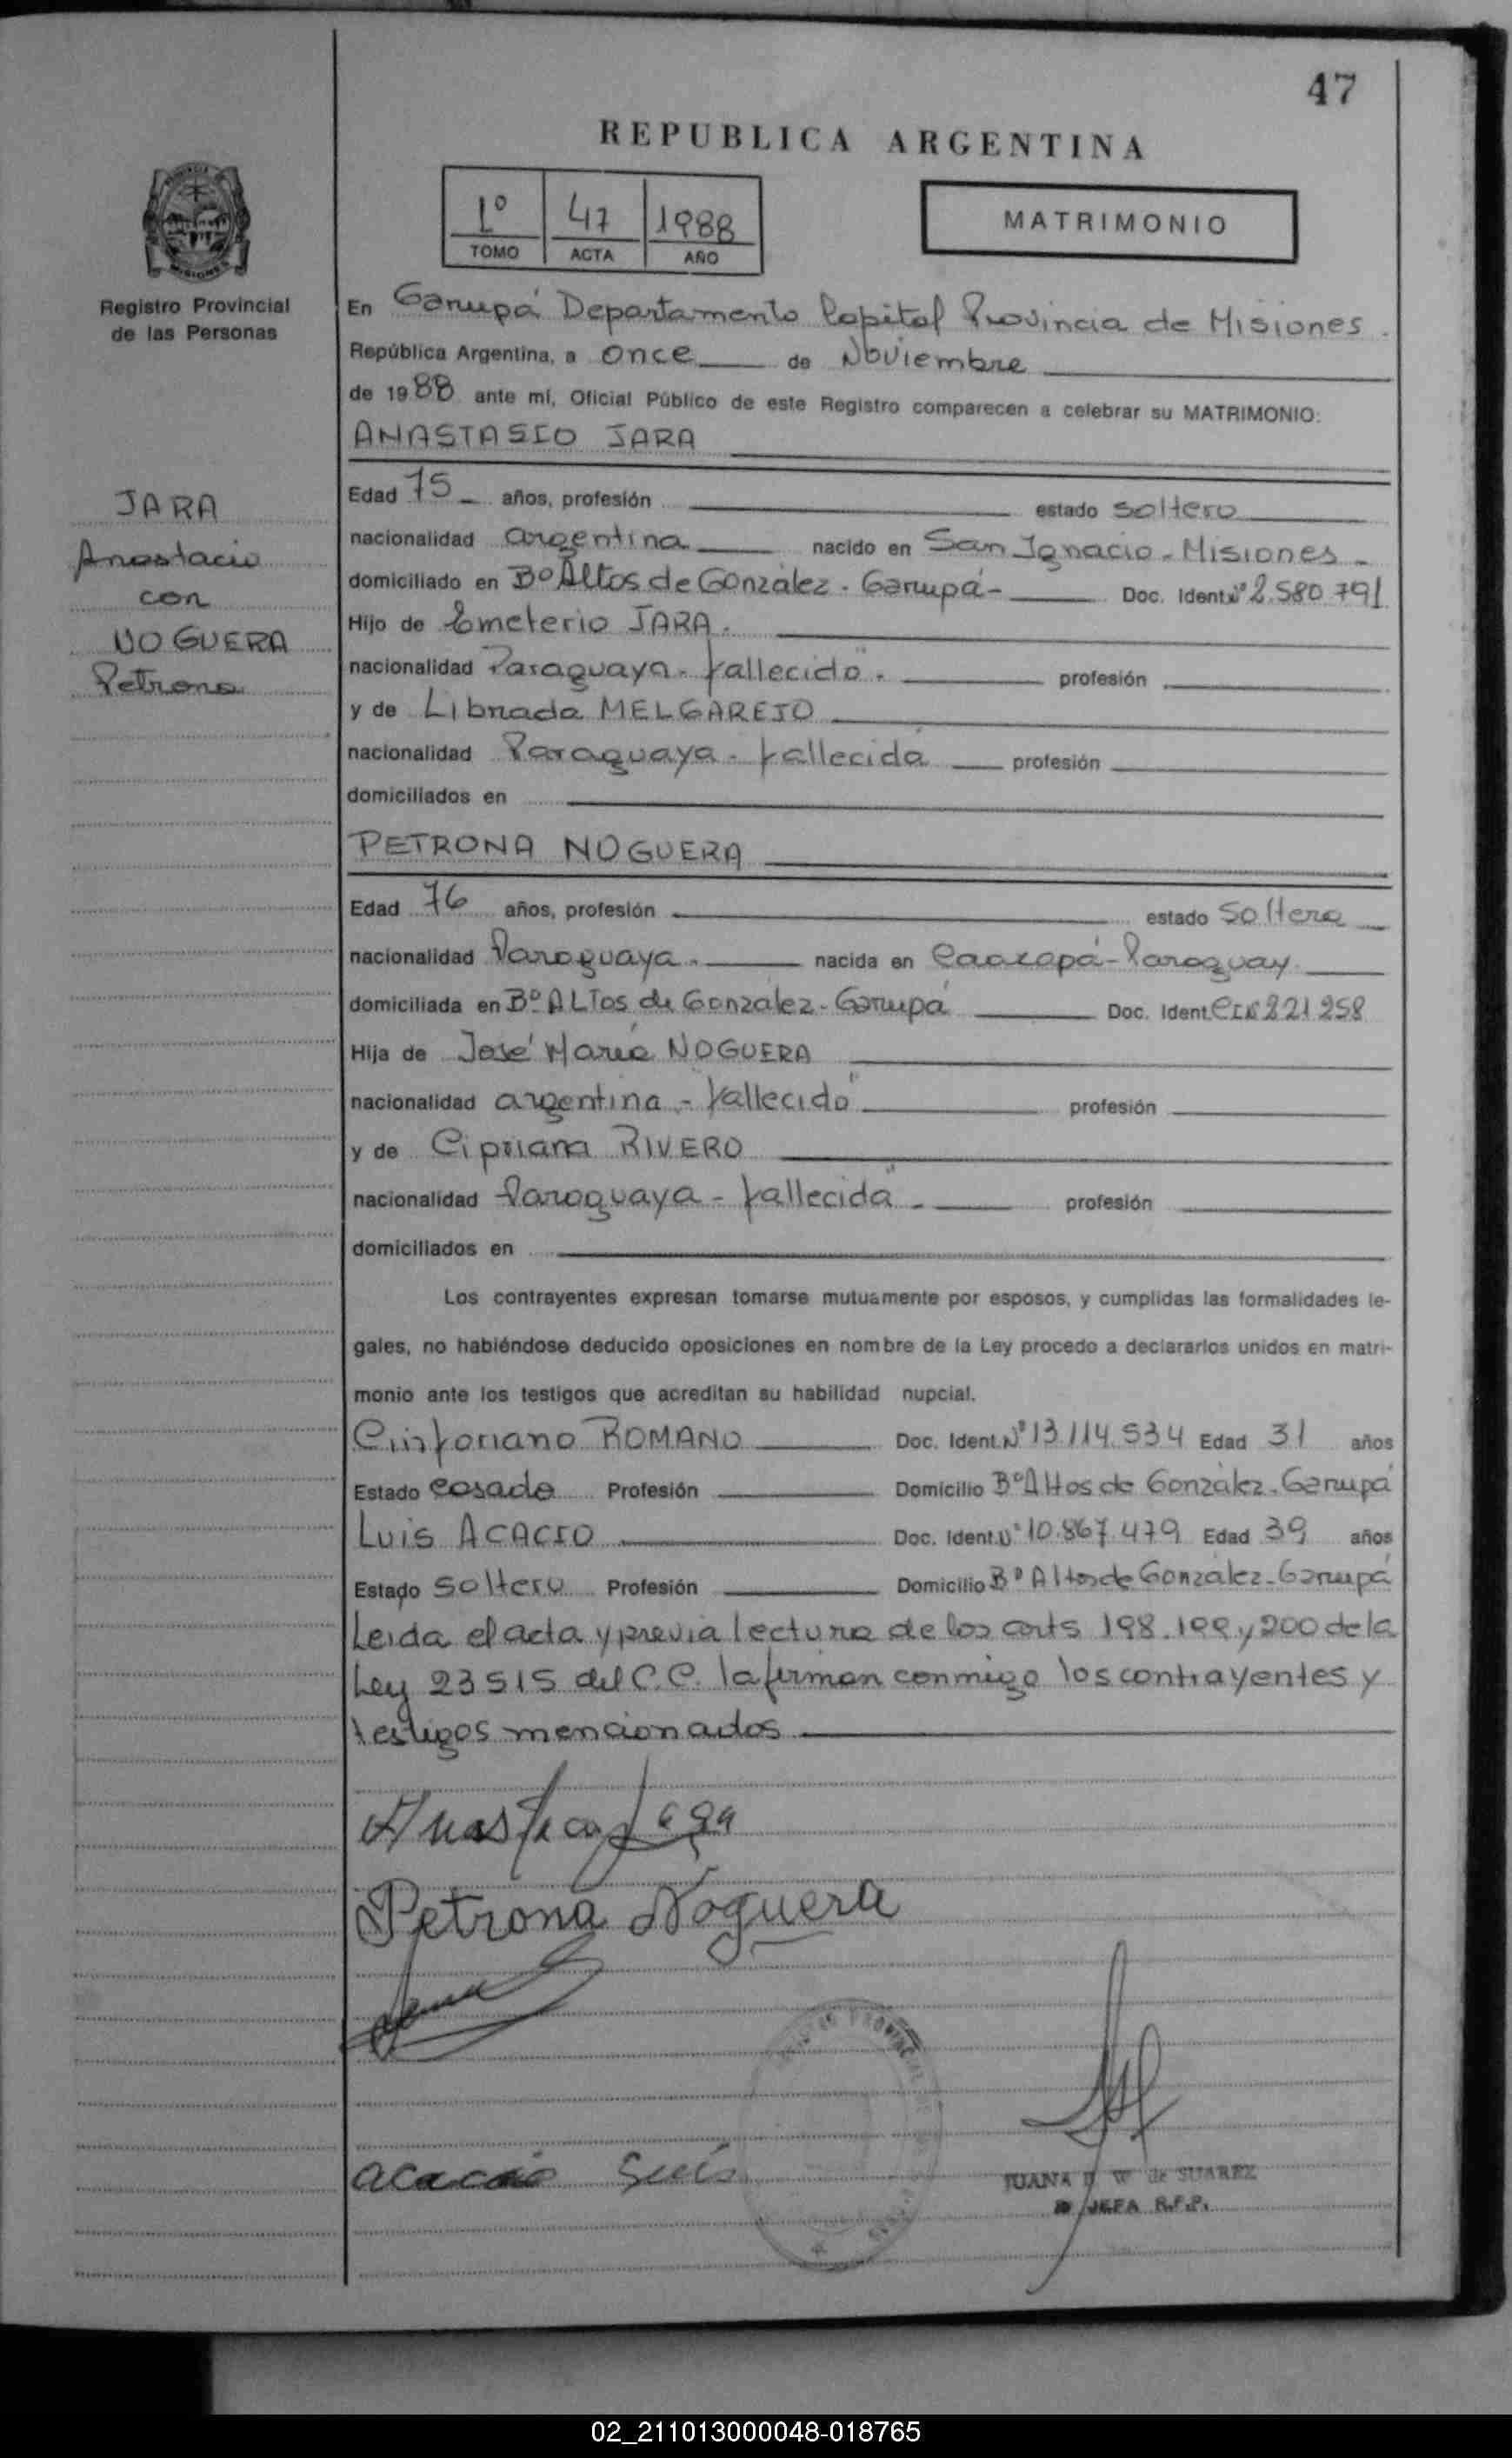 47
REPUBLICA ARGENTINA
1º 47 1988
TOMO ACTA AÑO
MATRIMONIO
MISIONES
Registro Provincial
de las Personas
En Garupá Departamento Capital Provincia de Misiones.
República Argentina, a once de Noviembre
de 1988 ante mí, Oficial Público de este Registro comparecen a celebrar su MATRIMONIO:
ANASTASIO JARA
JARA
Anastacio
con
NOGUERA
Petrona
Edad 75 años, profesión estado soltero
nacionalidad argentina nacido en San Ignacio - Misiones -
domiciliado en Bº Altos de González - Garupá - Doc. Ident. Nº 2.580.791
Hijo de Emeterio JARA.
nacionalidad Paraguaya - fallecido. profesión
y de Librada MELGAREJO
nacionalidad Paraguaya - fallecida profesión
domiciliados en
PETRONA NOGUERA
Edad 76 años, profesión estado soltera
nacionalidad Paraguaya. nacida en Caazapá - Paraguay.
domiciliada en Bº ALTos de González - Garupá Doc. Ident. CIN 221258
Hija de José María NOGUERA
nacionalidad argentina - fallecido profesión
y de Cipriana RIVERO
nacionalidad Paraguaya - fallecida - profesión
domiciliados en
Los contrayentes expresan tomarse mutuamente por esposos, y cumplidas las formalidades le-
gales, no habiéndose deducido oposiciones en nombre de la Ley procedo a declararlos unidos en matri-
monio ante los testigos que acreditan su habilidad nupcial.
ROMANO Doc. Ident. Nº 13.114.534 Edad 31 años
Estado casado Profesión Domicilio Bº Altos de González - Garupá
Luis ACACIO Doc. Ident. Nº 10.867.479 Edad 39 años
Estado soltero Profesión Domicilio Bº Altos de González - Garupá
Leida el acta y previa lectura de los arts 198. 199 y 200 de la
Ley 23515 del C.C. la firman conmigo los contrayentes y
testigos mencionados
Petrona Noguera
acacio Luis
JUANA W de SUAREZ
JEFA R.P.P.
02_211013000048-018765